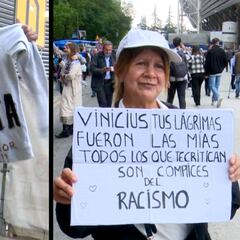 VINICIUS TUS LÁGRIMAS
FUERON LAS MIAS
TODOS LOS QUE TE CRITICAN
SON COMPLICES
DEL
RACISMO